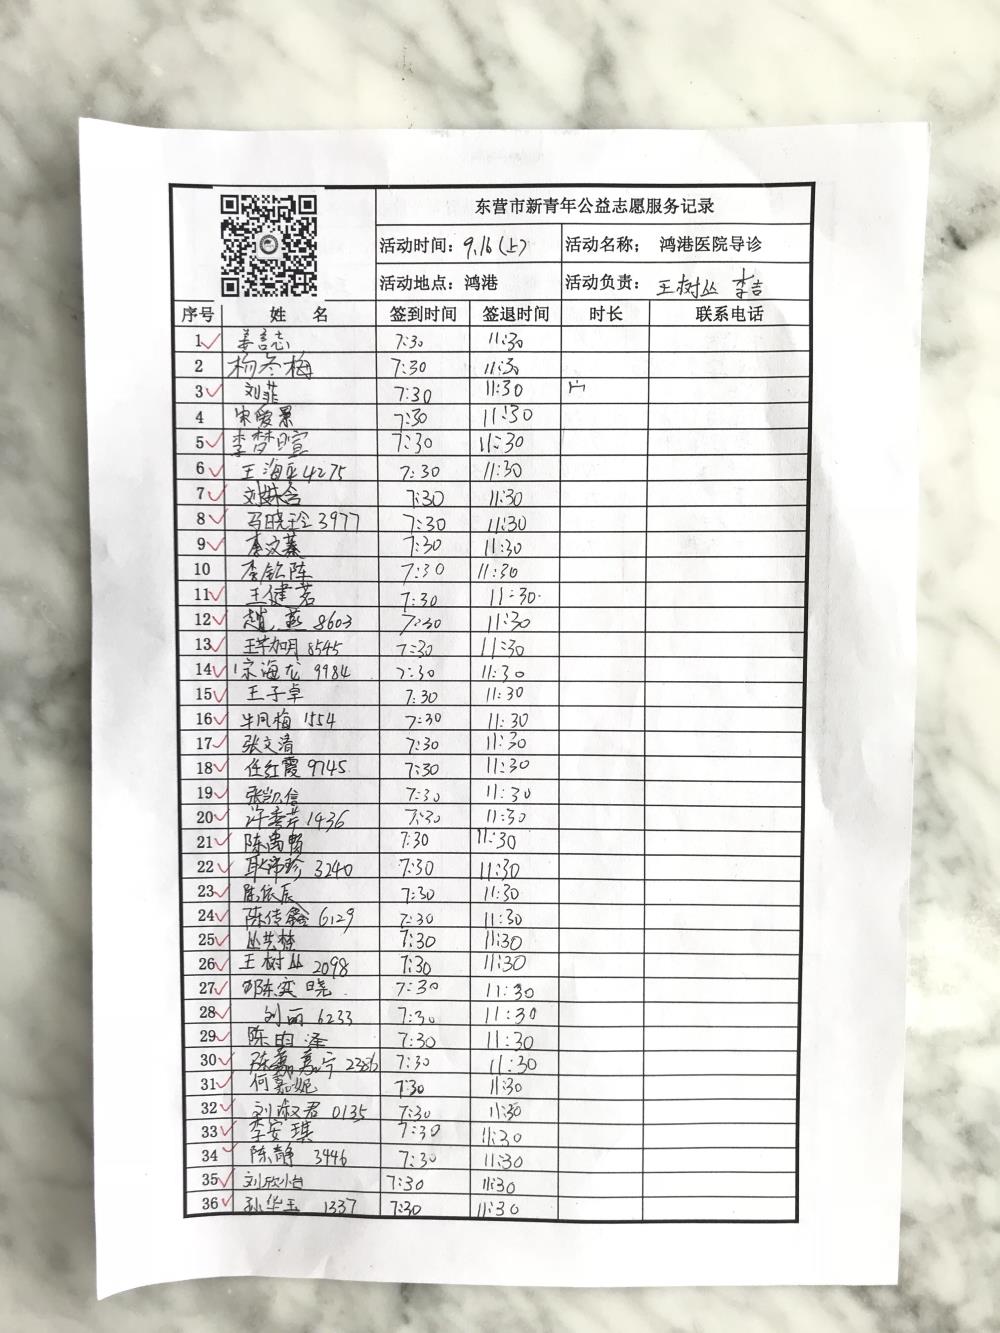 东营市新青年公益志愿服务记录
活动时间：9.16(上) 活动名称； 鸿港医院导诊
活动地点：鸿港 活动负责： 王树丛 李吉
序号 姓 名 签到时间 签退时间 时长 联系电话
1 姜言志 7:30 11:30
2 杨冬梅 7:30 11:30
3 刘菲 7:30 11:30
4 宋爱景 7:30 11:30
5 李梦暄 7:30 11:30
6 王海平4275 7:30 11:30
7 刘姝含 7:30 11:30
8 马晓玲3977 7:30 11:30
9 李汶蓁 7:30 11:30
10 李钦阵 7:30 11:30
11 王健茗 7:30 11:30
12 赵燕 8603 7:30 11:30
13 8545 7:30 11:30
14 宋海龙 9984 7:30 11:30
15 王子卓 7:30 11:30
16 牛凤梅 1554 7:30 11:30
17 张文清 7:30 11:30
18 任红霞 9745 7:30 11:30
19 张凯信 7:30 11:30
20 许秀芹1436 7:30 11:30
21 陈禹畅 7:30 11:30
22 耿 珍 3240 7:30 11:30
23 陈依辰 7:30 11:30
24 陈传鑫 6129 7:30 11:30
25 丛艺林 7:30 11:30
26 王树丛 2098 7:30 11:30
27 陈奕晓 7:30 11:30
28 刘丽 6233 7:30 11:30
29 陈昀泽 7:30 11:30
30 宁 2386 7:30 11:30
31 何嘉妮 7:30 11:30
32 刘淑君 0135 7:30 11:30
33 李安琪 7:30 11:30
34 陈静 3446 7:30 11:30
35 刘欣怡 7:30 11:30
36 孙华玉 1337 7:30 11:30